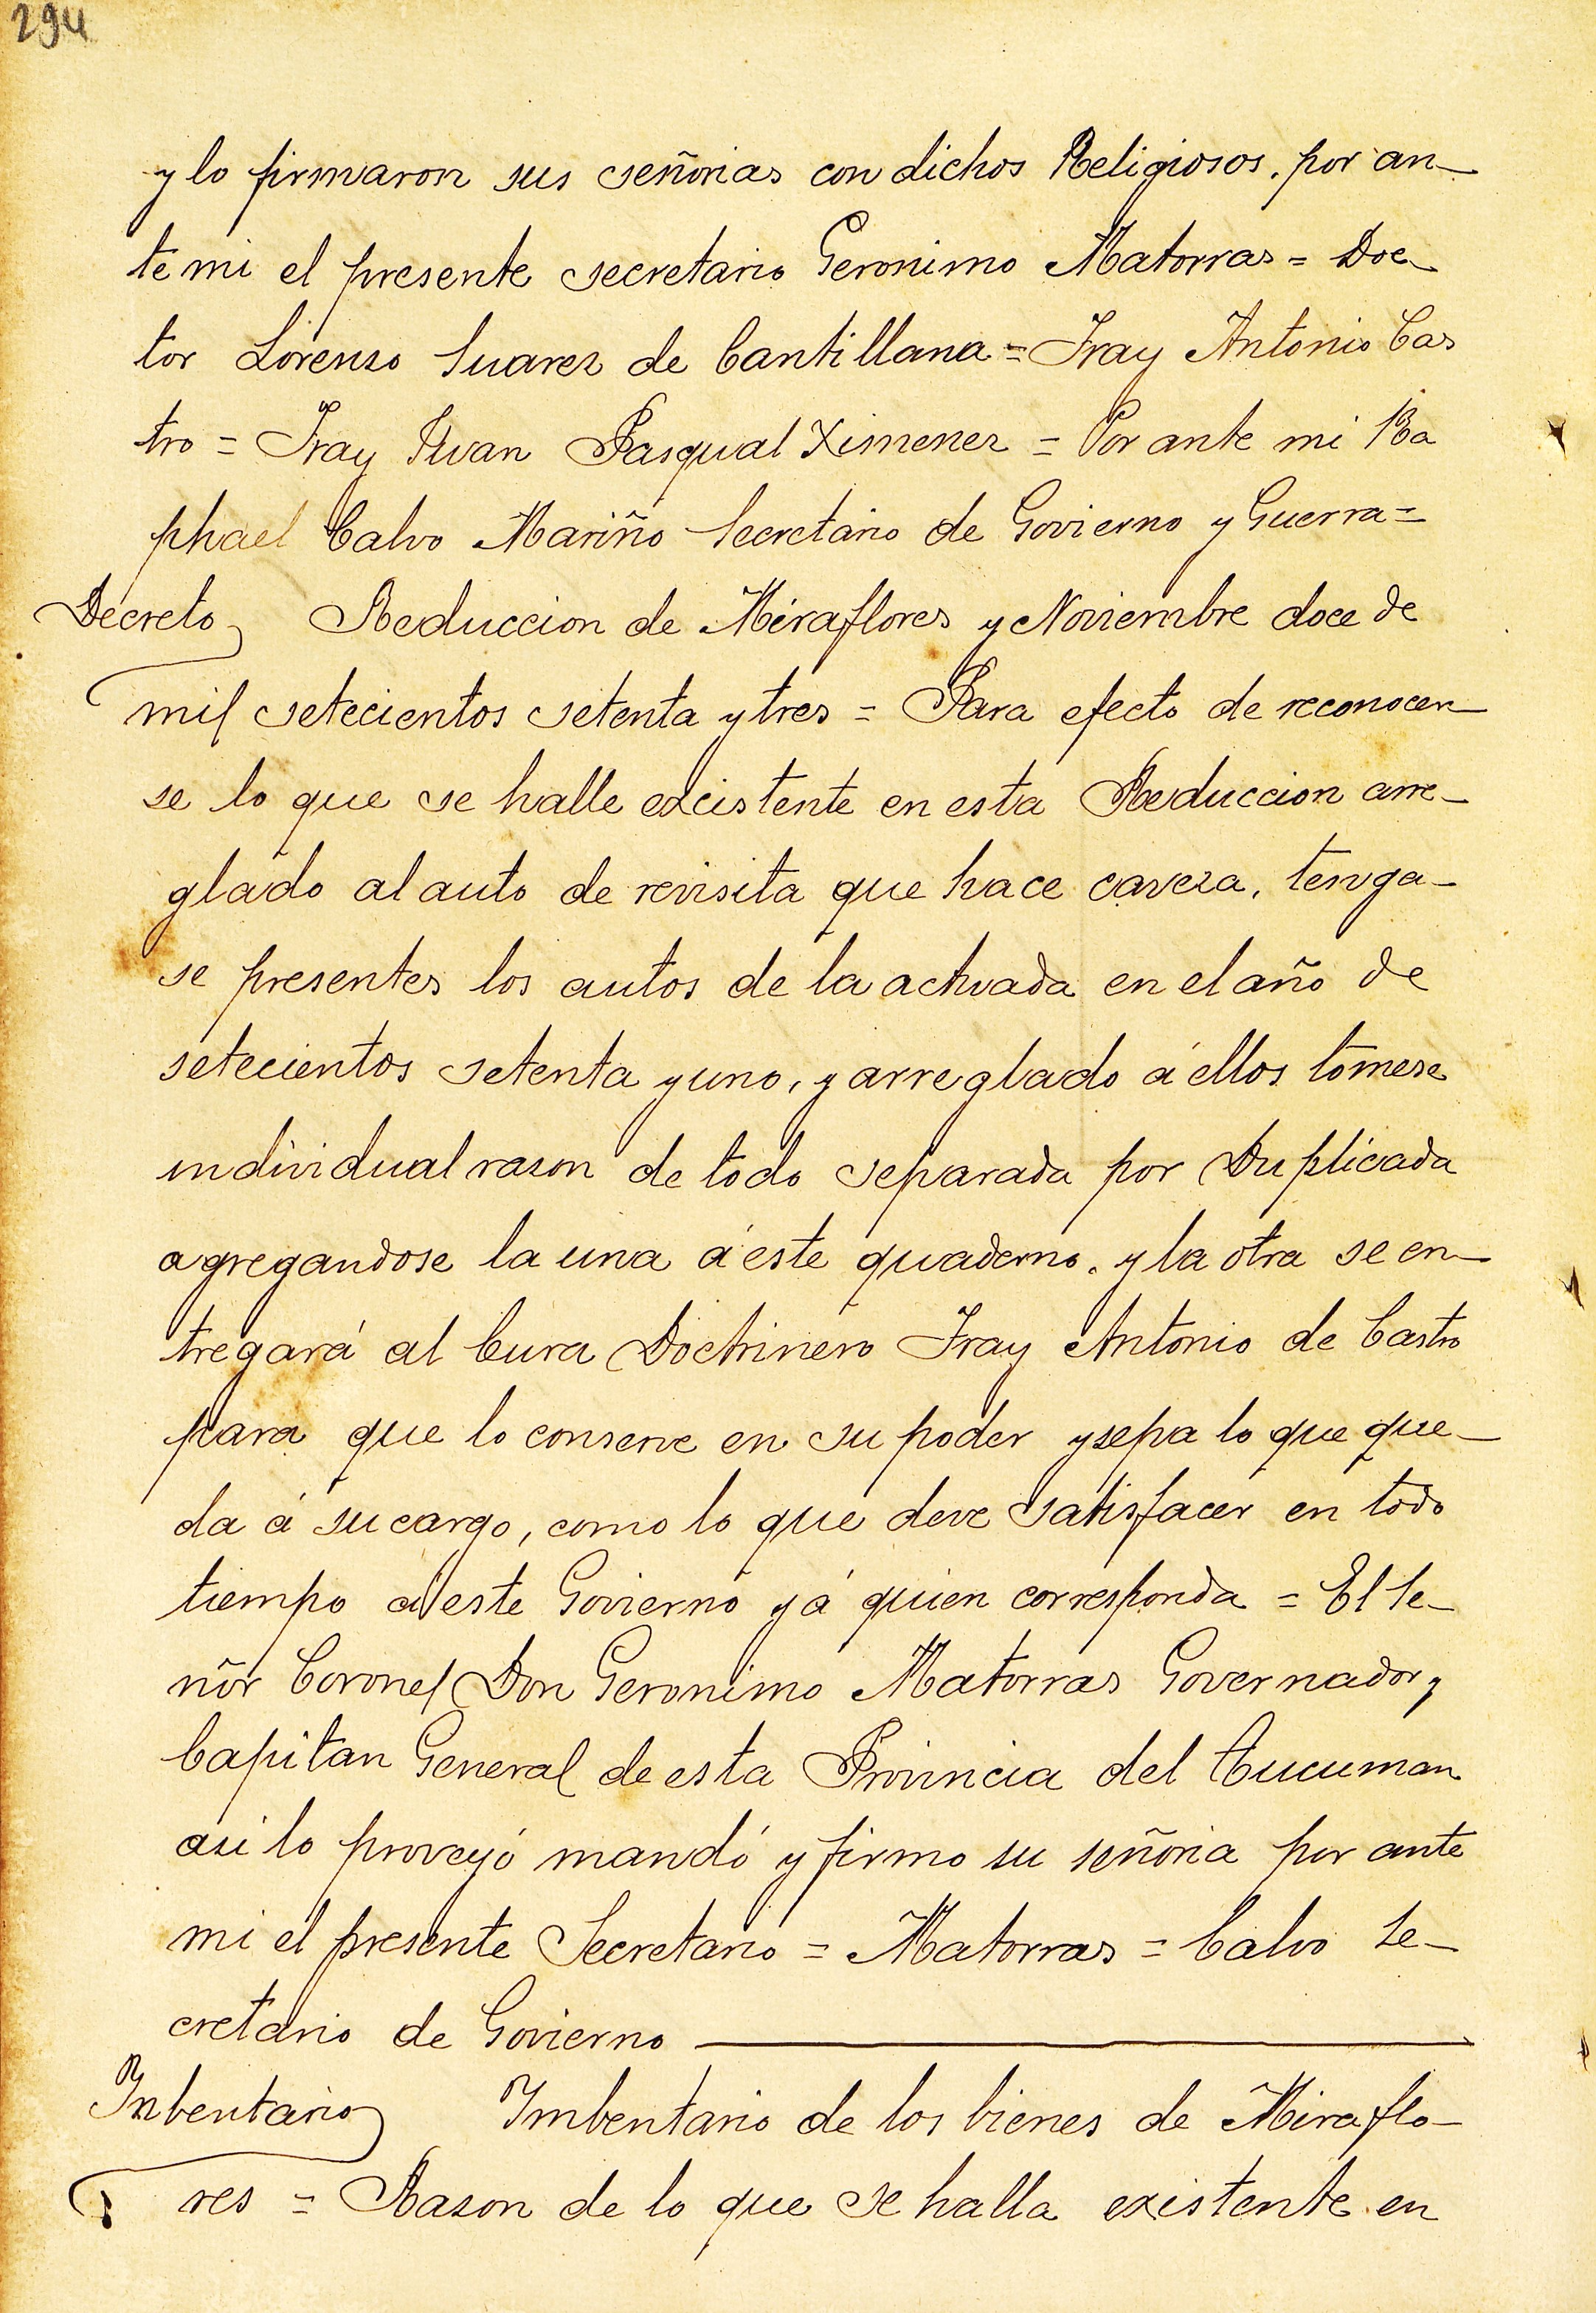 294
y lo firmaron sus señorias con dichos Religiosos. por an-
te mi el presente secretario Geronimo Matorras = Doc-
tor Lorenso Suarez de Cantillana = Fray Antonio Cas
tro = Fray Juan Pasqual Ximenez = Por ante mi Ra
phael Calvo Mariño Secretario de Govierno y Guerra =
Decreto Reduccion de Miraflores y Noviembre doce de
mil setecientos setenta y tres = Para efecto de reconocer-
se lo que se halle excistente en esta Reduccion arre-
glado al auto de revisita que hace caveza, tenga-
se presentes los autos de la actuada en el año de
setecientos setenta y uno, y arreglado á ellos tómese
individual rason de todo separada por Duplicada
agregandose la una á este quaderno. y la otra se en-
tregará al Cura Doctrinero Fray Antonio de Castro
para que lo conserve en su poder y sepa lo que que-
da á su cargo, como lo que deve satisfacer en todo
tiempo á este Govierno y á quien corresponda = El Se-
ñor Coronel Don Geronimo Matorras Governador y
Capitan General de esta Provincia del Tucuman
asi lo proveyó mandó y firmo su señoria por ante
mi el presente Secretario = Matorras = Calvo Se-
cretario de Govierno
Inbentario Imbentario de los bienes de Miraflo-
res = Rason de lo que se halla existente en